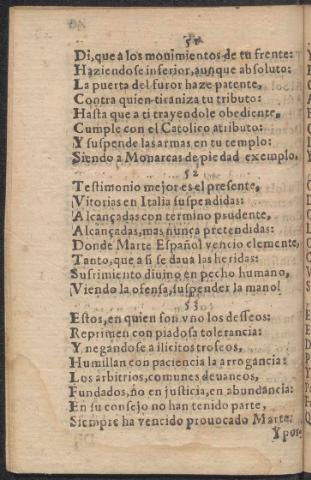 51
Di, que a los mouimientos de tu frente:
Haziendose inferior, aunque absoluto:
La puerta del furor haze patente,
Contra quien tiraniza tu tributo:
Hasta que a ti trayendole obediente,
Cumple con el Catolico atributo:
Y suspende las armas en tu templo:
Siendo a Monarcas de piedad exemplo.
52
Testimonio mejor es el presente,
Vitorias en Italia suspendidas:
Alcançadas con termino prudente,
Alcançadas, mas nunca pretendidas:
Donde Marte Español vencio clemente,
Tanto, que a si se daua las heridas:
Sufrimiento diuino en pecho humano,
Viendo la ofensa, suspender la mano!
53
Estos, en quien son vno los desseos:
Reprimen con piadosa tolerancia:
Y negandose a ilicitos troseos,
Humillan con paciencia la arrogancia:
Los arbitrios, comunes deuaneos,
Fundados, no en justicia, en abundancia:
En su consejo no han tenido parte,
Siempre ha vencido prouocado Marte:
Y por